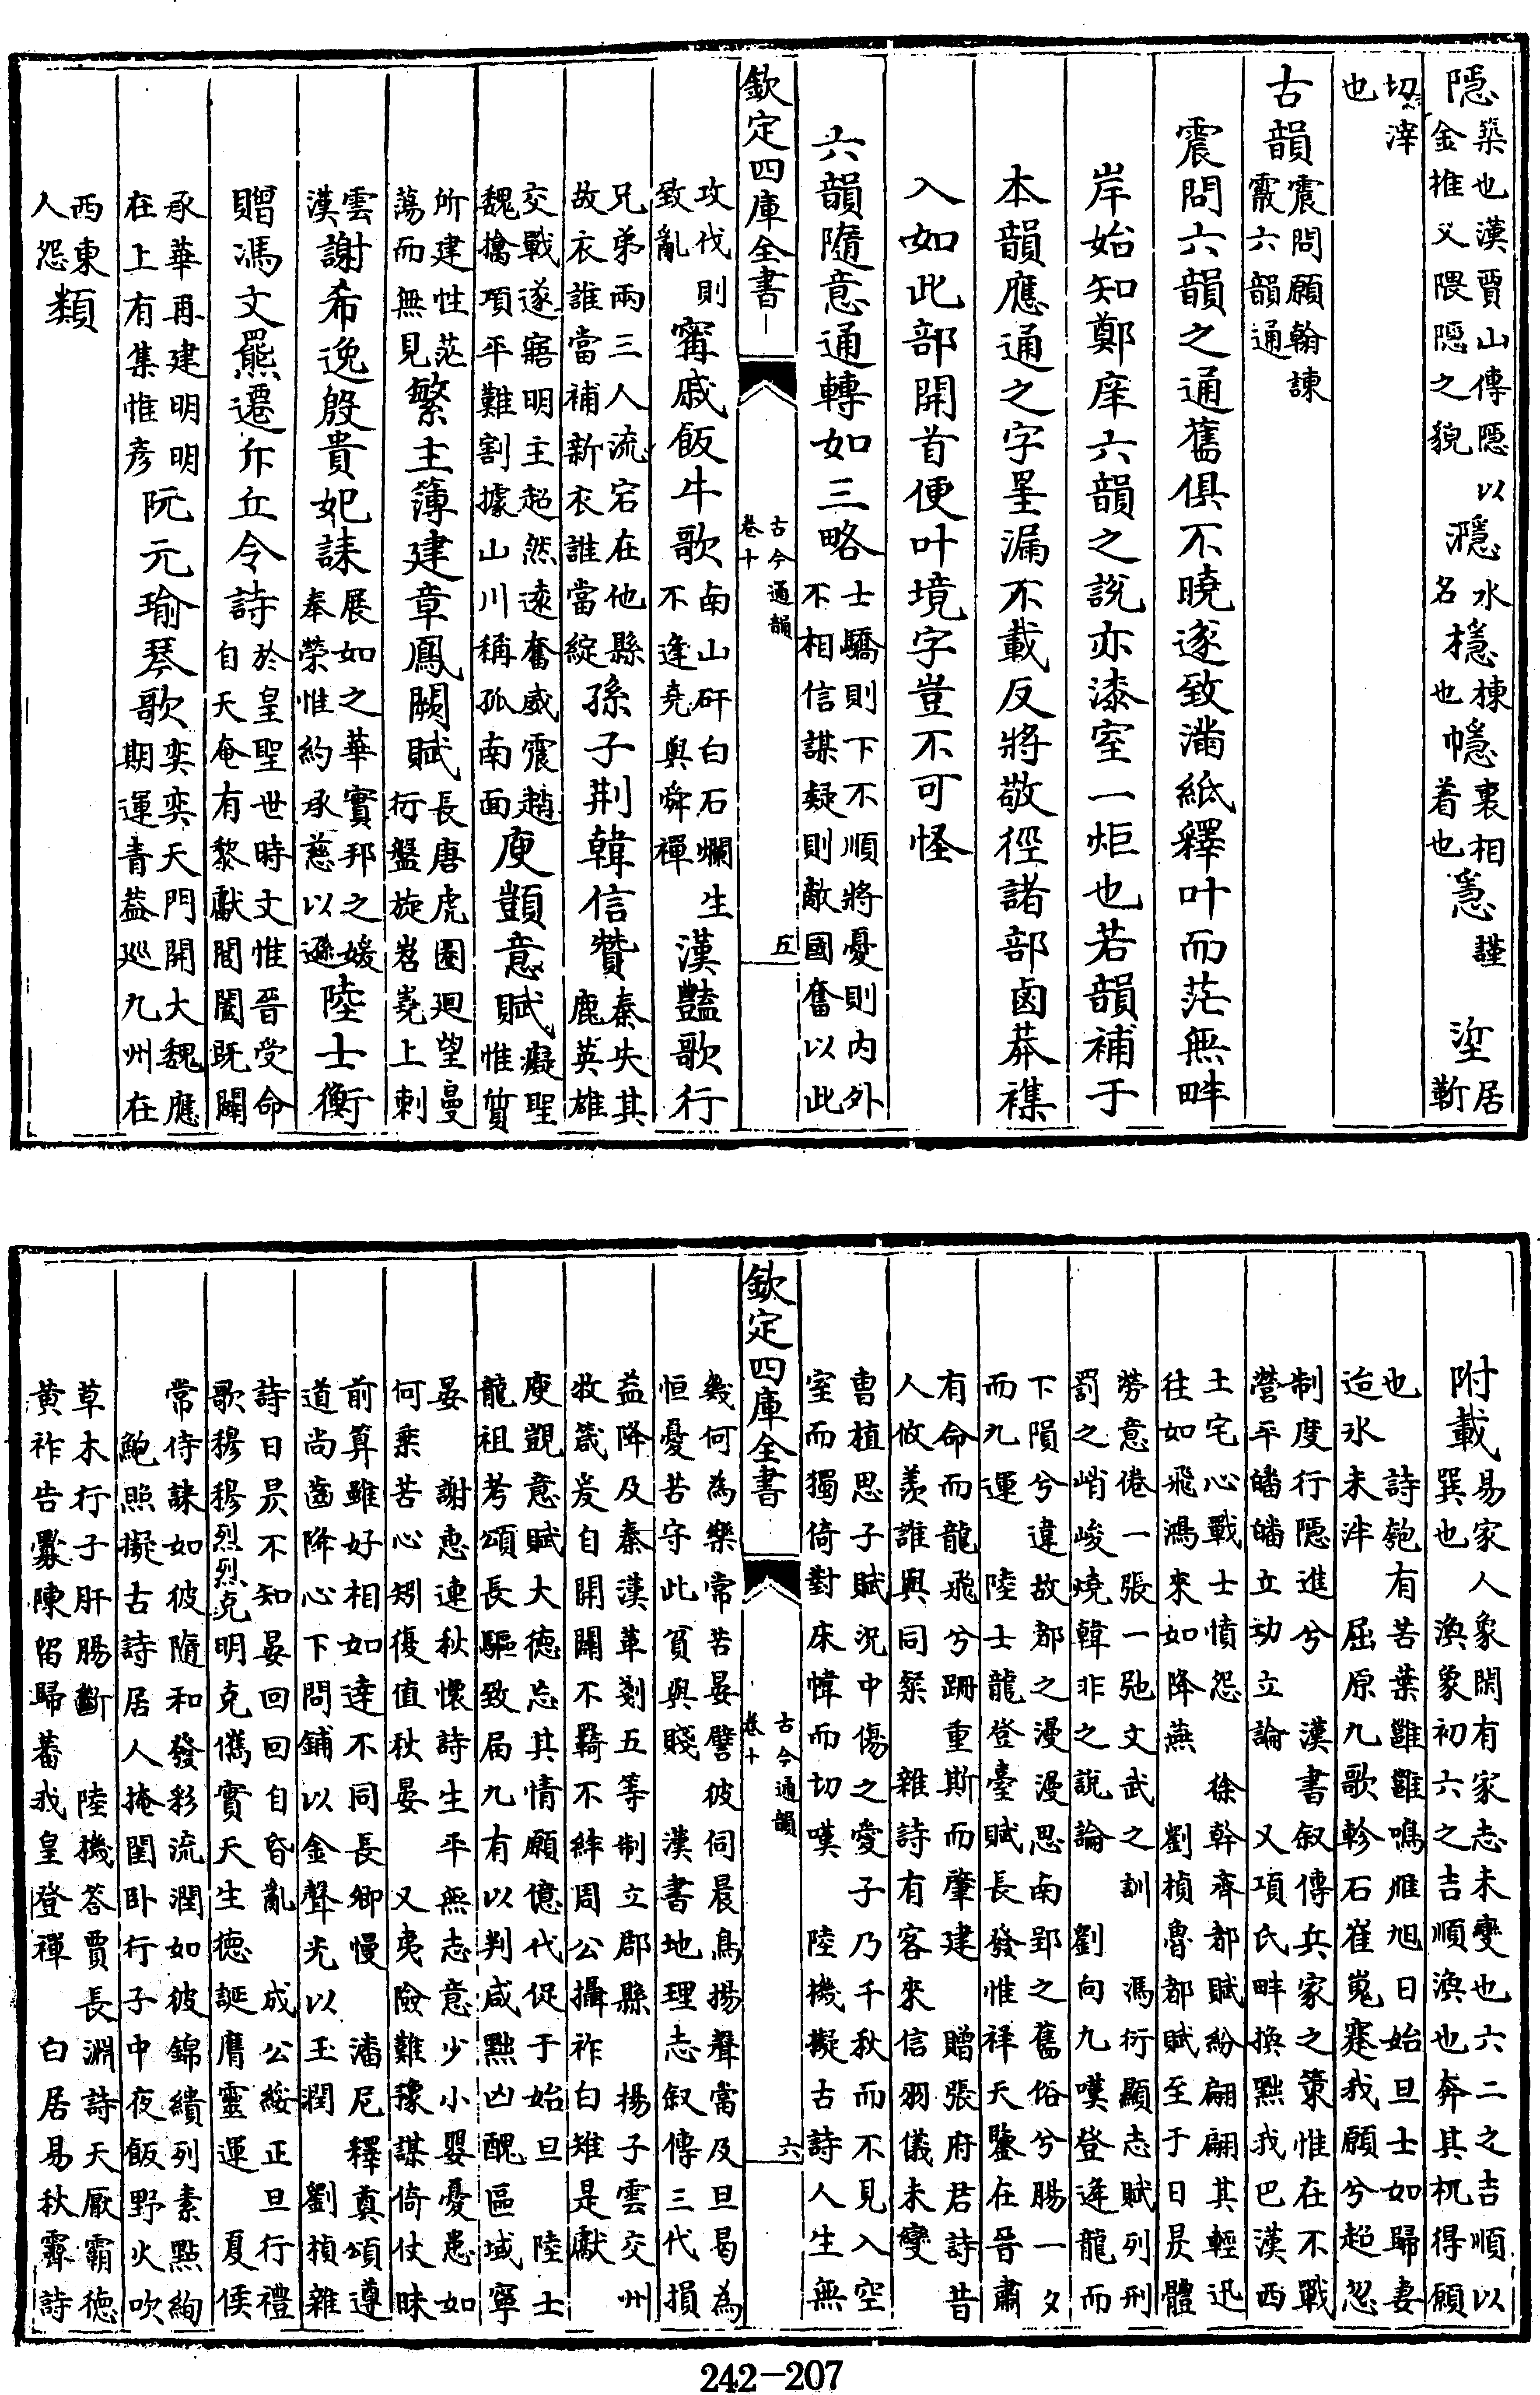 隱築也漢賈山傳隱以金椎 父隈隱之貌 濦水名 檼棟也 㡥裹相着也 謹 垽居靳
切滓也
古韻震問願翰諫霰六韻通
震問六韻之通舊俱不曉遂致滿紙釋叶而茫無畔
岸始知鄭庠六韻之說亦漆室一炬也若韻補于
本韻應通之字罣漏不載反將敬徑諸部鹵莽襍
入如此部開首便叶境字豈不可怪
六韻隨意通轉如三略士驕則下不順將憂則内外不相信謀疑則敵國奮以此
欽定四庫全書 古今通韻 卷十 五
攻伐則致亂甯戚飯牛歌南山矸白石爛生不逢堯與舜禪漢豔歌行
兄弟兩三人流宕在他縣故衣誰當補新衣誰當綻孫子荆韓信贊秦失其鹿英雄
交戰遂寤明主超然遠奮威震趙魏擒項平難割據山川稱孤南面庾顗意賦癡聖惟質
所建性茫蕩而無見繁主薄建章鳳闕賦長唐虎圈廻望曼衍盤旋岧嶤上刺
雲漢謝希逸殷貴妃誄展如之華實邦之媛奉榮惟約承慈以遜陸士衡
贈馮文羆遷斥丘令詩於皇聖世時文惟晉受命自天奄有黎獻閶闔既闢
承華再建明明在上有集惟彥阮元瑜琴歌奕奕天門開大魏應期運青蓋巡九州在
西東人怨類
附載易家人象閑有家志未變也六二之吉順以巽也 渙象初六之吉順渙也奔其机得願
也 詩匏有苦葉雝雝鳴雁旭日始旦士如歸妻迨氷未泮 屈原九歌軫石崔嵬蹇我願兮超忽
制度行隱進兮 漢書叙傳兵家之策惟在不戰營平皤皤立功立論 又項氏畔換黜我巴漢西
土宅心戰士憤怨 徐幹齊都賦紛翩翩其輕迅往如飛鴻來如降燕 劉楨魯都賦至于日昃體
勞意倦一張一弛文武之訓 馮衍顯志賦列刑罰之峭峻燒韓非之說論 劉向九嘆登逢龍而
下隕兮違故都之漫漫思南郢之舊俗兮腸一夕而九運 陸士龍登臺賦長發惟祥天鑒在晉肅
有命而龍飛兮跚重斯而肇建 贈張府君詩昔人攸羨誰與同粲 雜詩有客來信羽儀未變
曹植思子賦況中傷之愛子乃千秋而不見入空室而獨倚對床幃而切嘆 陸機擬古詩人生無
欽定四庫全書 古今通韻 卷十 六
幾何為樂常苦晏譬彼伺晨鳥揚聲當及旦曷為恒憂苦守此貧與賤 漢書地理志叙傳三代損
益降及秦漢革剗五等制立郡縣 揚子雲交州牧箴爰自開闢不羈不絆周公攝祚白雉是獻
庾覬意賦大德忘其情願億代促于始旦 陸士龍祖考頌長驅致屆九有以判咸黜凶醜區域寧
晏 謝惠連秋懷詩生平無志意少小嬰憂患如何乘苦心矧復值秋晏 又夷險難豫謀倚仗昧
前算雖好相如達不同長卿慢 潘尼釋奠頌遵道尚齒降心下問鋪以金聲光以玉潤 劉楨雜
詩日昃不知晏回回自昏亂 成公綏正旦行禮歌穆穆烈烈克明克儁實天生德誕膺靈運 夏侯
常侍誄如彼隨和發彩流潤如彼錦繢列素點絢 鮑照擬古詩居人掩閨卧行子中夜飯野火吹
草木行子肝腸斷 陸機答賈長淵詩天厭霸德黃祚告釁陳留歸蕃我皇登禪 白居易秋霽詩
242-207